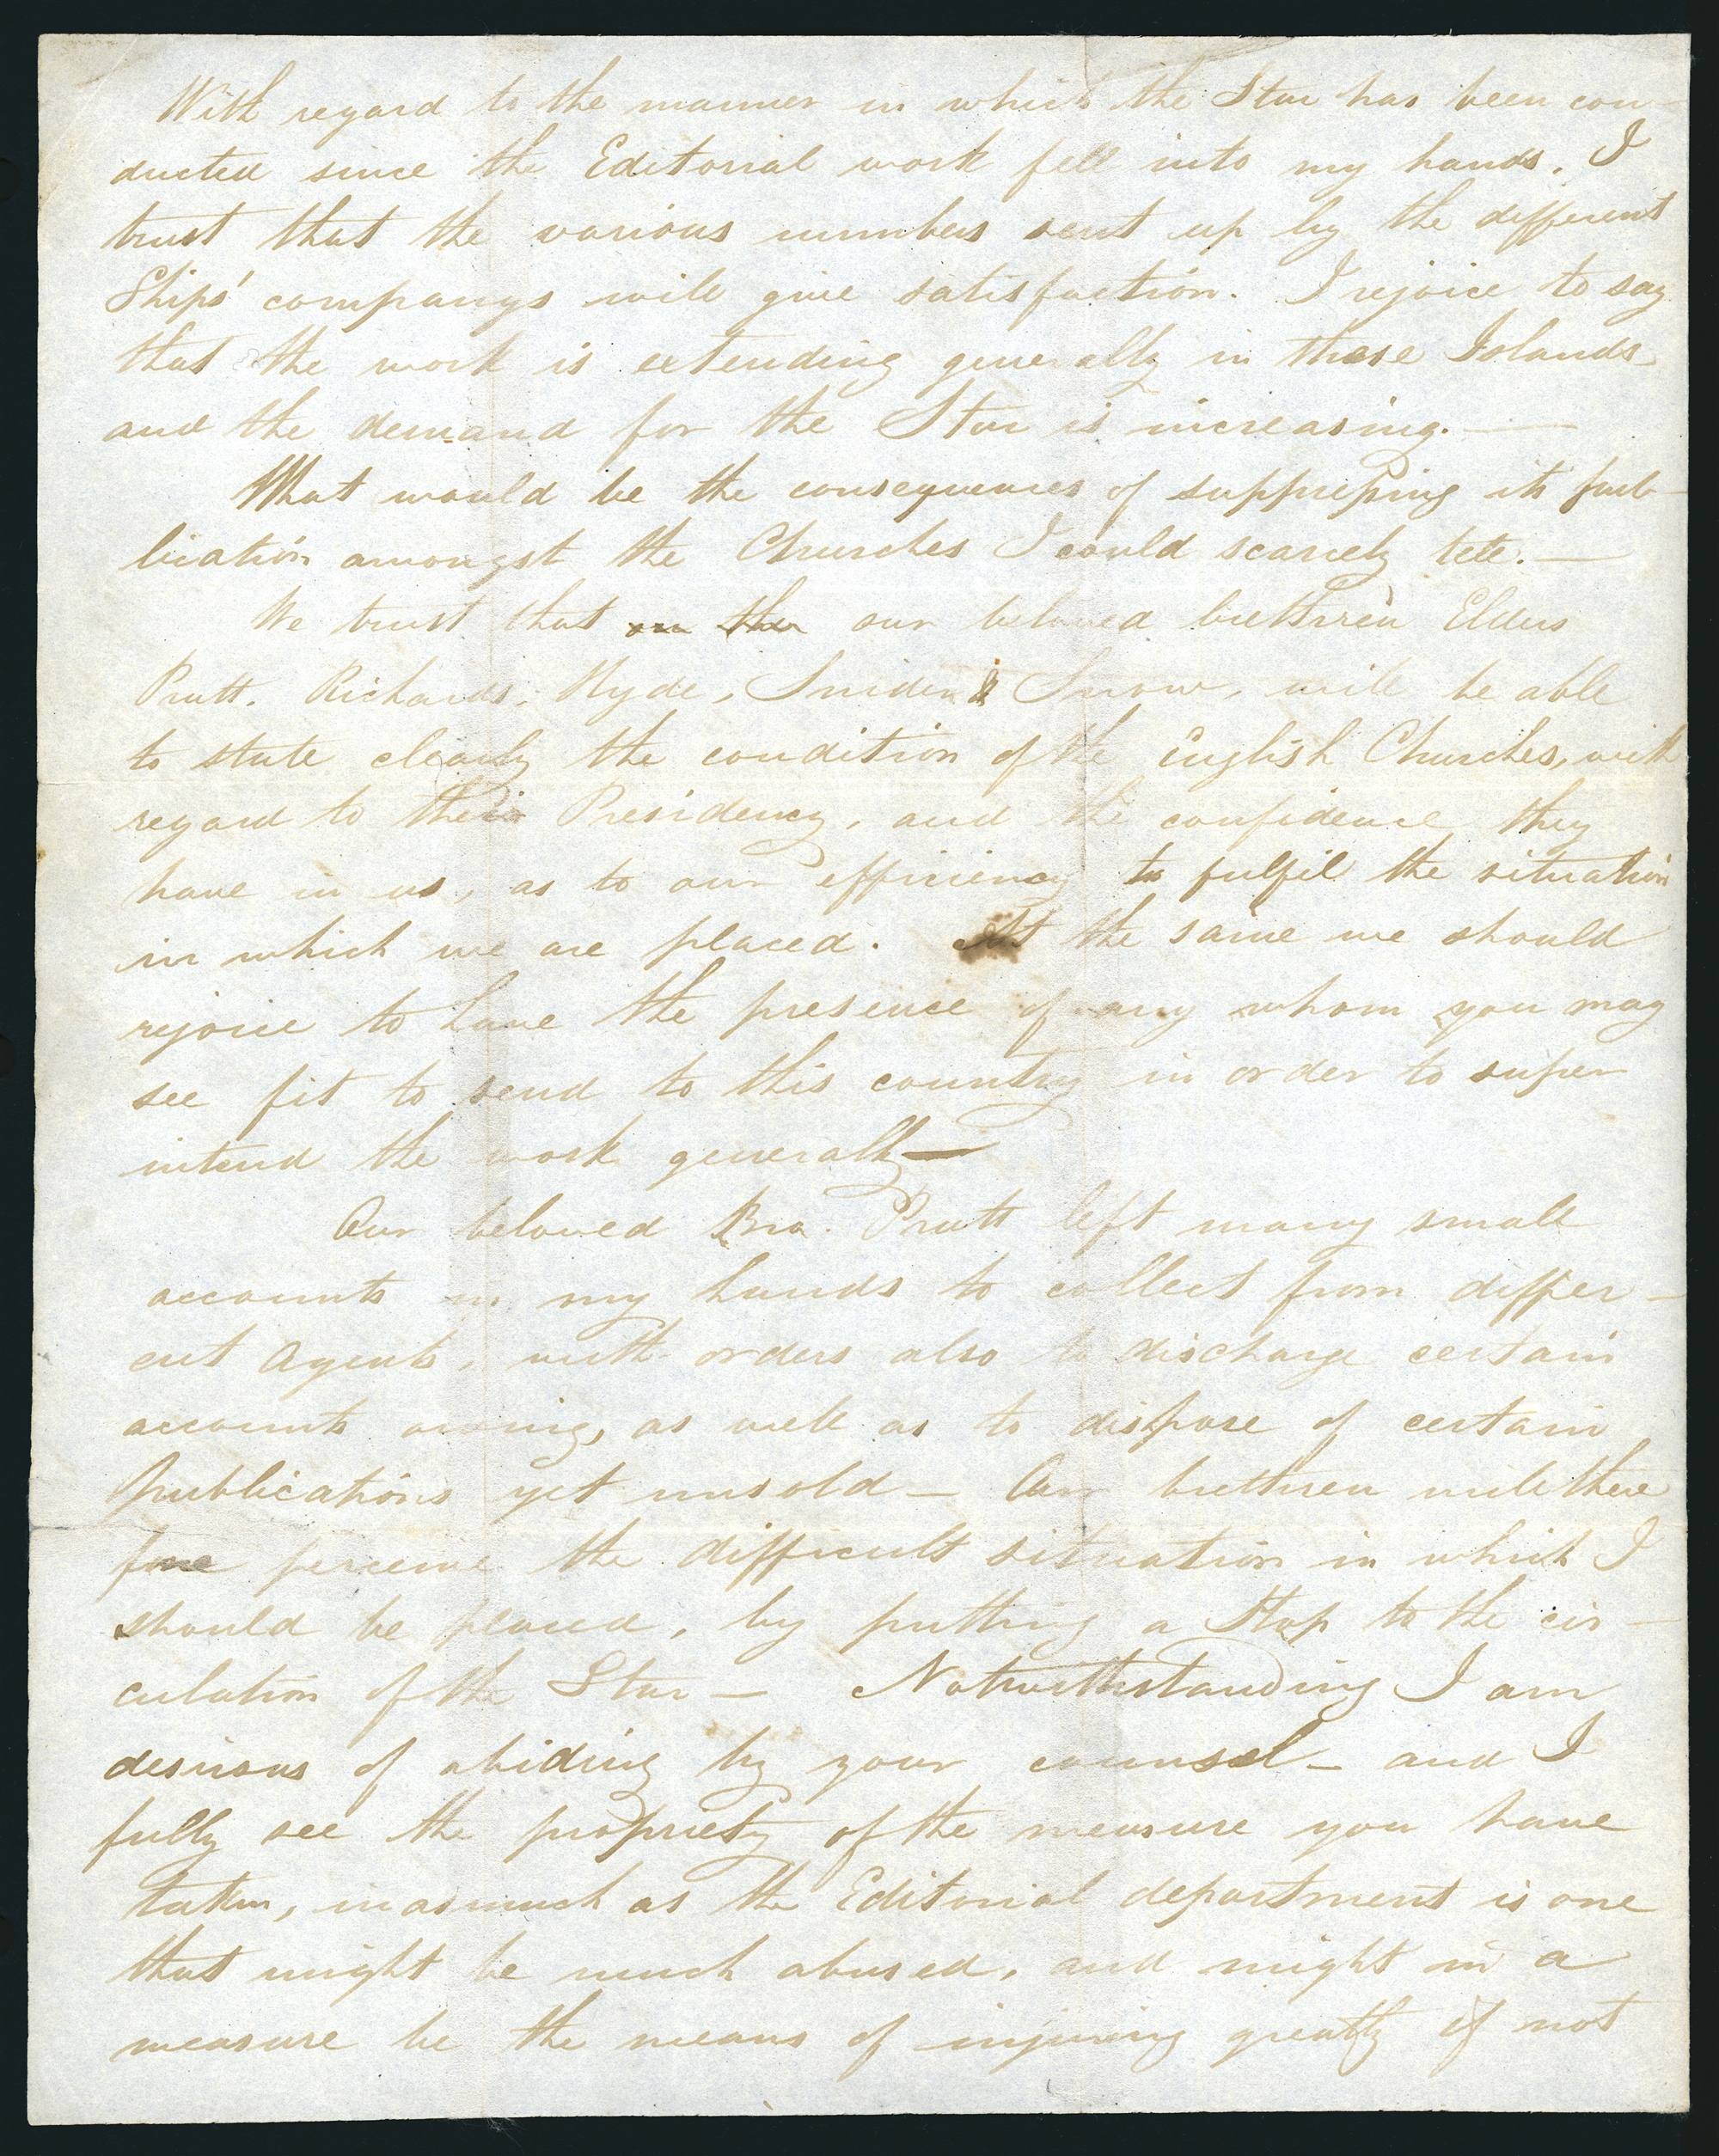 With regard to the manner in which the Star has been con-
ducted since the Editorial work fell into my hands, I
trust that the various numbers sent up by the different
Ships' companys will give satisfaction. I rejoice to say
that the work is extending generally in these Islands
and the demand for the Star is increasing. —
What would be the consequences of suppressing its pub-
lication amongst the Churches I could scarcely tell. —
We trust that on the our beloved brethren Elders
Pratt. Richards, Hyde, Snider & Snow, will be able
to state clearly the condition of the English Churches, with
regard to their Presidency, and the confidence they
have in us, as to our efficiency to fulfil the situation
in which we are placed. At the same we should
rejoice to have the presence of any whom you may
see fit to send to this country in order to super
intend the work generally —
Our beloved Bro. Pratt left many small
accounts in my hands to collect from differ-
ent Agents, with orders also to discharge certain
accounts owing, as well as to dispose of certain
publications yet unsold — Our brethren will there
fore perceive the difficult situation in which I
should be placed, by putting a Stop to the cir-
culation of the Star — Notwithstanding I am
desirous of abiding by your counsel — and I
fully see the propriety of the measure you have
taken, inasmuch as the Editorial department is one
that might be much abused, and might in a
measure be the means of injuring greatly if not